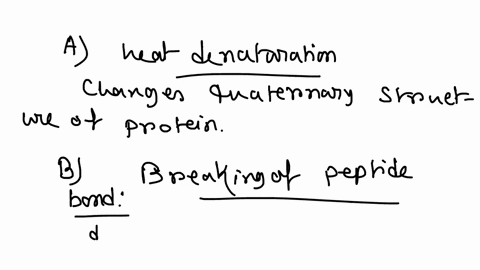 A) heat denaturation
Changes Quaternary struct-
ure of protein.
B) Breaking of peptide
bond:
d